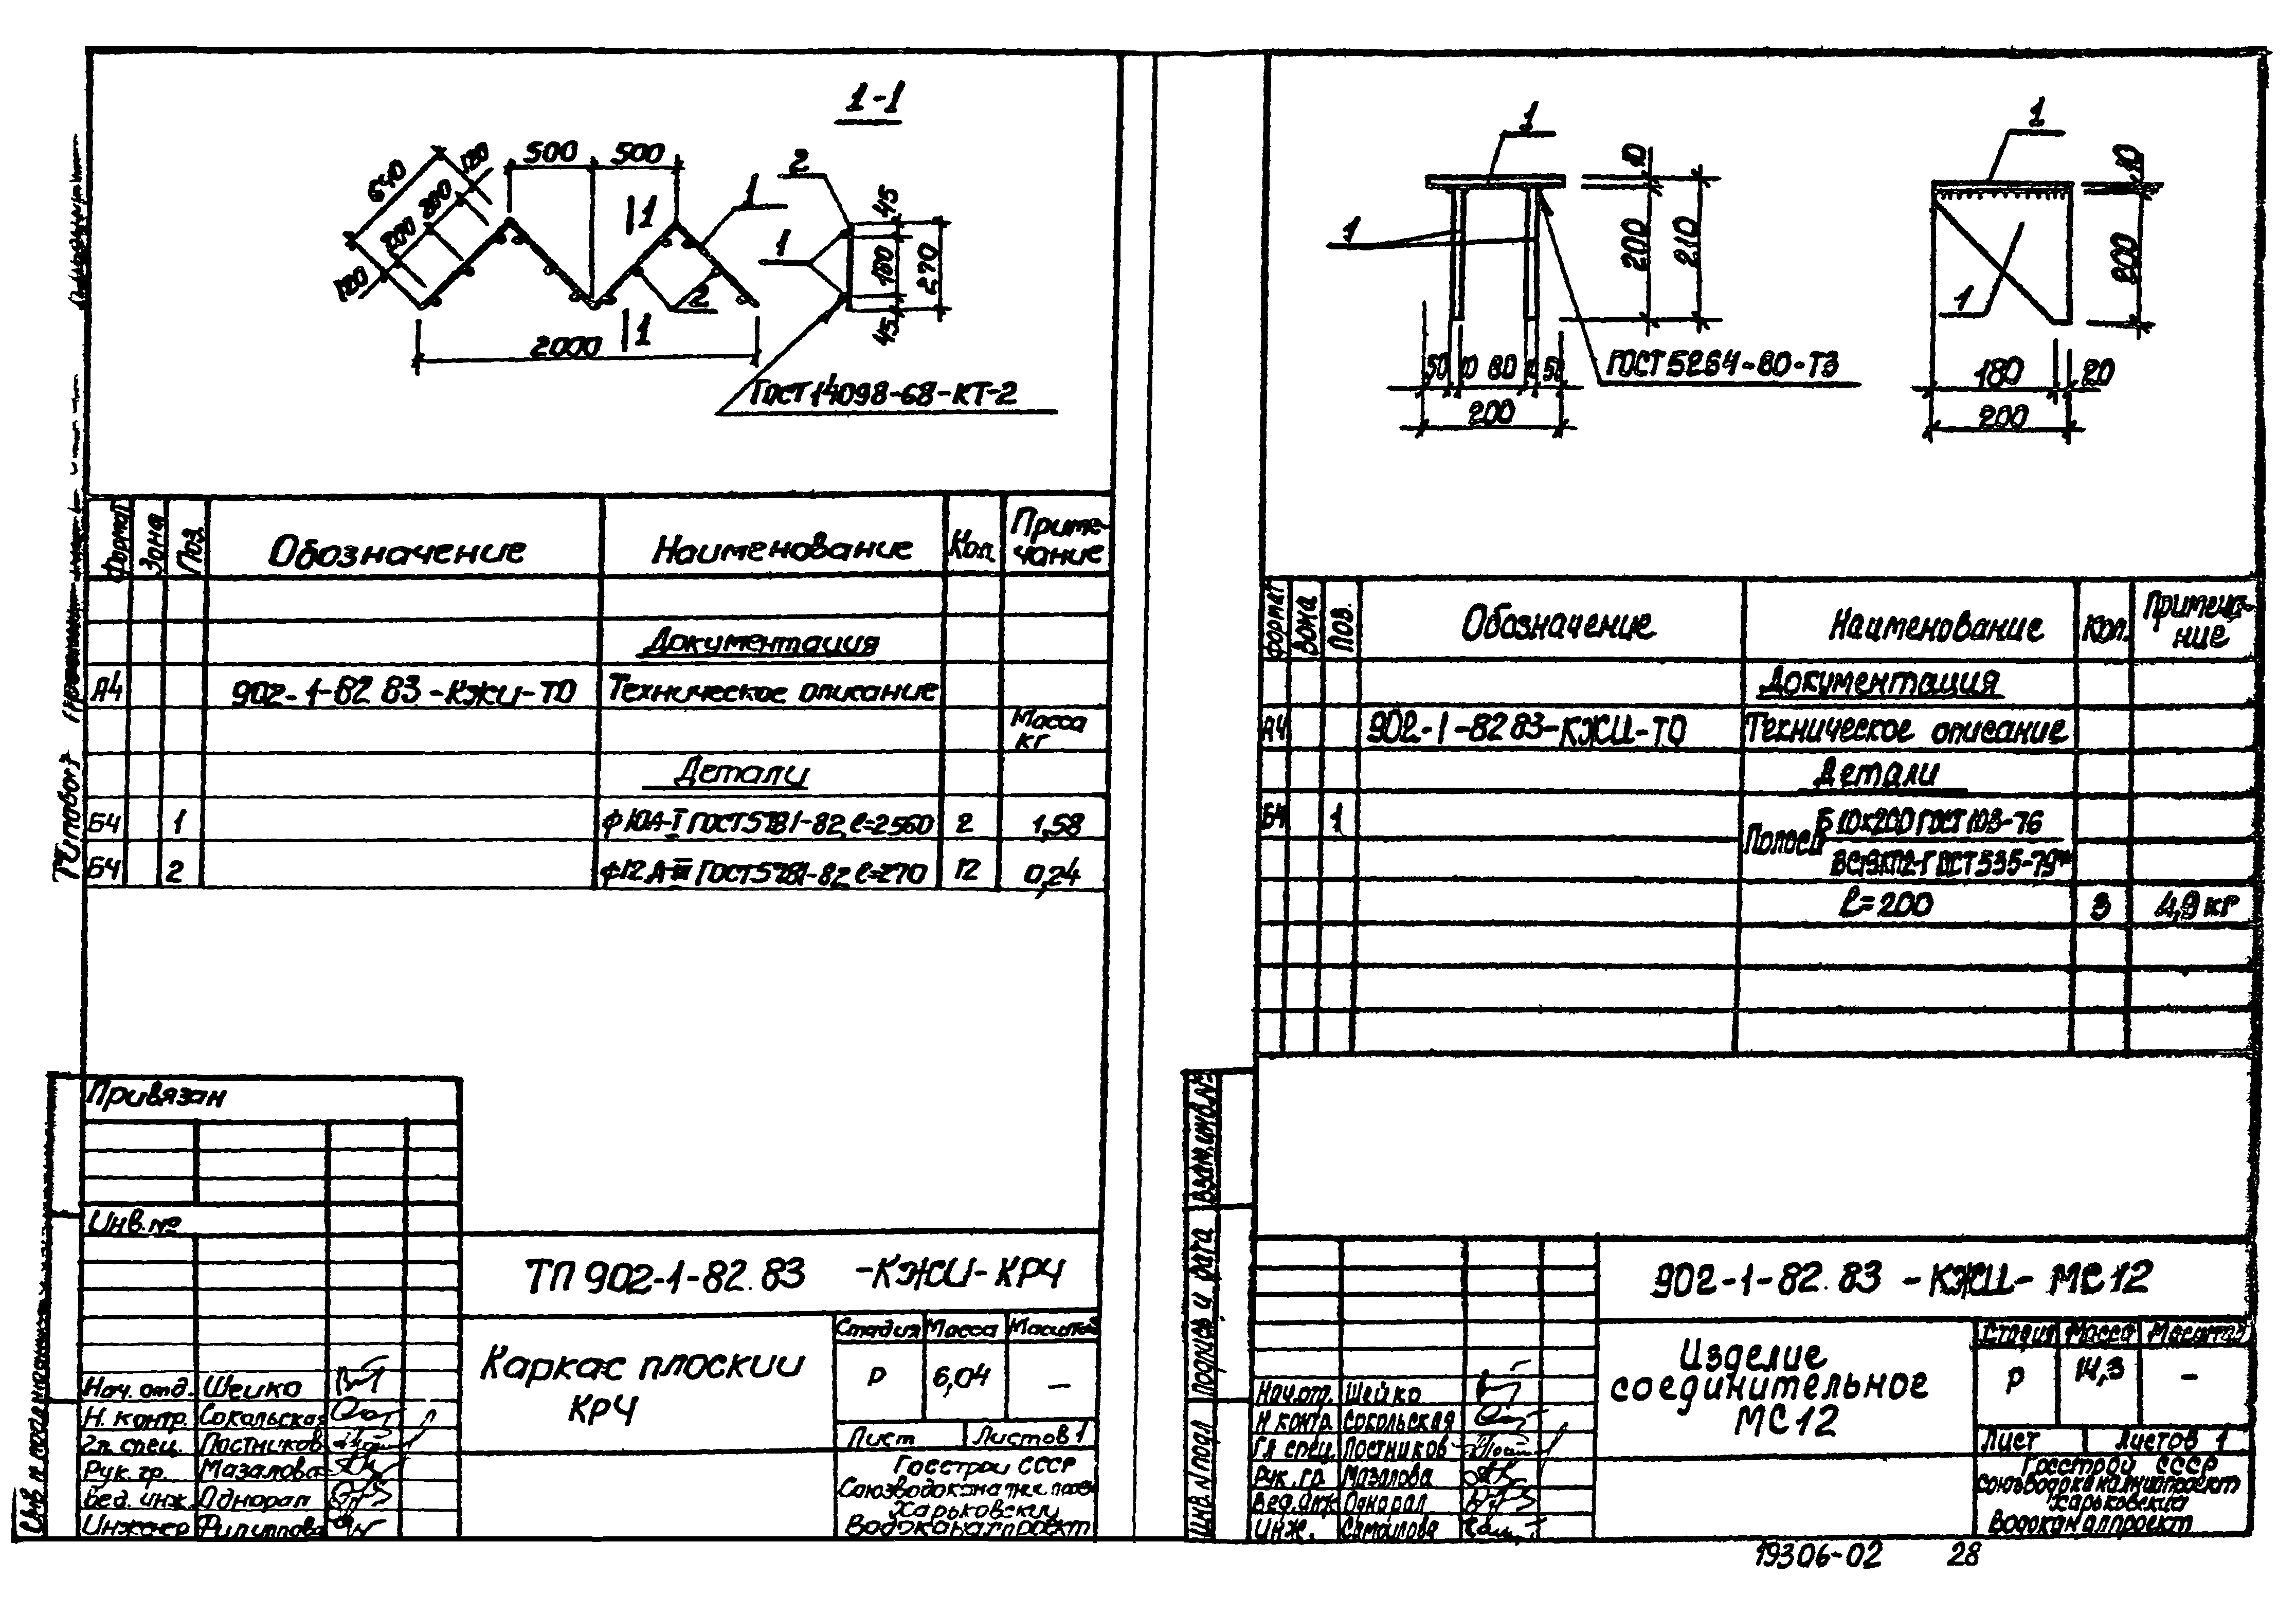 1-1
640
120
200
200
120
500
500
1
1
1
2
1
2
45
180
45
270
2000
ГОСТ 14098-68-КТ-2
Формат
Зона
Поз.
Обозначение
Наименование
Кол.
Приме-
чание
Документация
А4
902-1-82 83-КЖИ-ТО
Техническое описание
Масса
кг
Детали
Б4
1
ф10А-I ГОСТ5781-82, ℓ=2560
2
1,58
Б4
2
ф12А-III ГОСТ5781-82 ℓ=270
12
0,24
Привязан
Инв. №
ТП 902-1-82.83 -КЖИ-КР4
Каркас плоский
КР4
Стадия
Масса
Масштаб
Р
6,04
—
Лист
Листов 1
Госстрой СССР
Союзводоканалпроект
Харьковский
Водоканалпроект
Нач. отд. Шейко
Н. контр. Сокольская
Гл. спец. Постников
Рук. гр. Мазалова
Вед. инж. Однорал
Инженер Филиппова
1
1
10
200
210
50
10
80
10
50
200
ГОСТ5264-80-Т3
1
1
10
200
180
20
200
Формат
Зона
Поз.
Обозначение
Наименование
Кол.
Примеча-
ние
Документация
А4
902-1-82 83-КЖИ-ТО
Техническое описание
Детали
Б4
1
Полоса
Б 10х200 ГОСТ 103-76
ℓ=200
3
4,9 кг
Взам. инв. №
Подпись и дата
Инв. № подл
902-1-82.83 -КЖИ- МС12
Изделие
соединительное
МС12
Стадия
Масса
Масштаб
Р
14,3
-
Лист
Листов 1
Госстрой СССР
Союзводоканалниипроект
Харьковский
Водоканалпроект
Нач. отд. Шейко
Н контр. Сокольская
Гл спец. Постников
Рук. гр Мазалова
Вед. инж Однорал
Инж. Самойлова
19306-02
28